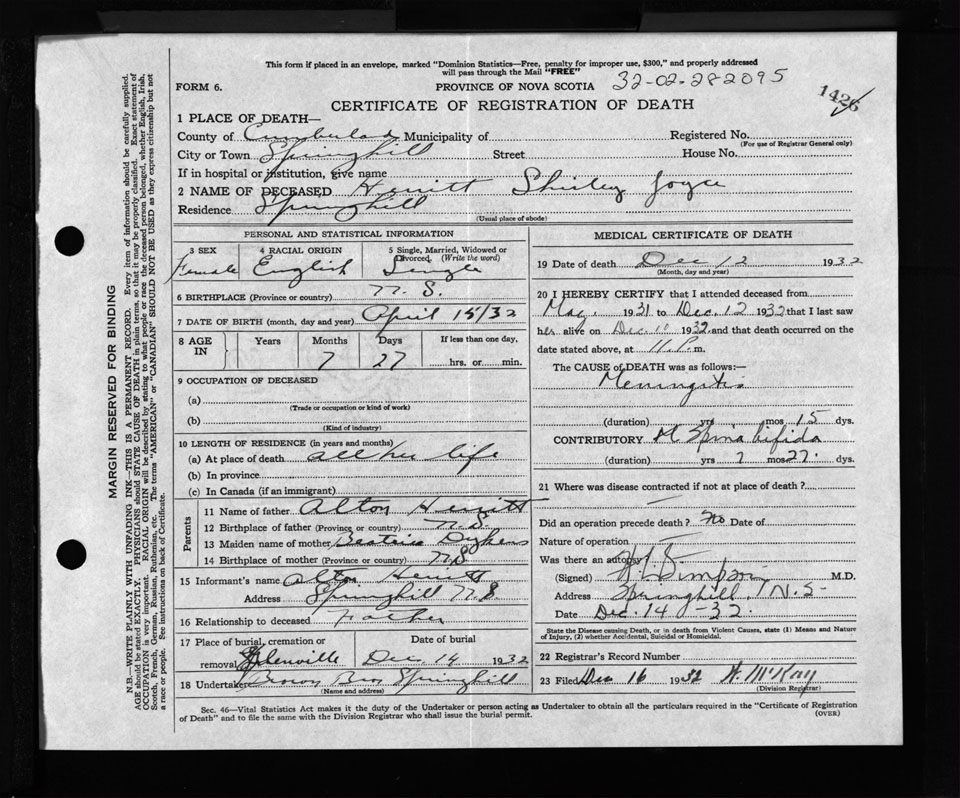 This form if placed in an envelope, marked "Dominion Statistics—Free, penalty for improper use, $300," and properly addressed
will pass through the Mail "FREE"
32-02-282095
1426
FORM 6.
PROVINCE OF NOVA SCOTIA
CERTIFICATE OF REGISTRATION OF DEATH
1 PLACE OF DEATH—
County of Cumberland Municipality of
Registered No.
(For use of Registrar General only)
City or Town Springhill Street House No.
If in hospital or institution, give name
2 NAME OF DECEASED Hewitt Shirley Joyce
Residence Springhill
(Usual place of abode)
PERSONAL AND STATISTICAL INFORMATION
3 SEX 4 RACIAL ORIGIN 5 Single, Married, Widowed or
Divorced. (Write the word)
Female English Single
6 BIRTHPLACE (Province or country) N. S.
7 DATE OF BIRTH (month, day and year) April 15/32
8 AGE IN Years Months Days If less than one day,
7 27 hrs. or min.
9 OCCUPATION OF DECEASED
(a)
(Trade or occupation or kind of work)
(b)
(Kind of industry)
10 LENGTH OF RESIDENCE (in years and months)
(a) At place of death all her life
(b) In province
(c) In Canada (if an immigrant)
Parents
11 Name of father Alton Hewitt
12 Birthplace of father (Province or country) N.S.
13 Maiden name of mother Beatrice Dykens
14 Birthplace of mother (Province or country) N.S
15 Informant's name Alton Hewitt
Address Springhill N.S
16 Relationship to deceased Father
17 Place of burial, cremation or Date of burial
removal Glenville Dec. 14 1932
18 Undertaker Brown Bros Springhill
(Name and address)
MEDICAL CERTIFICATE OF DEATH
19 Date of death Dec 12 1932
(Month, day and year)
20 I HEREBY CERTIFY that I attended deceased from
1931 to Dec. 12 1932 that I last saw
her alive on Dec. 11 1932 and that death occurred on
the date stated above, at 11.P.m.
The CAUSE of DEATH was as follows:—
Meningitis
(duration) yrs mos 15 dys.
CONTRIBUTORY Spina bifida
(duration) yrs 7 mos 27. dys.
21 Where was disease contracted if not at place of death?
Did an operation precede death? No Date of
Nature of operation
Was there an autopsy
(Signed) Simpson M.D.
Address Springhill, N.S-
Date Dec. 14 -32.
State the Disease causing Death, or in death from Violent Causes, state (1) Means and Nature
of Injury, (2) whether Accidental, Suicidal or Homicidal.
22 Registrar's Record Number
23 Filed Dec 16 1932 McKay
(Division Registrar)
Sec. 46—Vital Statistics Act makes it the duty of the Undertaker or person acting as Undertaker to obtain all the particulars required in the "Certificate of Registration
of Death" and to file the same with the Division Registrar who shall issue the burial permit.
(OVER)
MARGIN RESERVED FOR BINDING
N.B.—WRITE PLAINLY WITH UNFADING INK—THIS IS A PERMANENT RECORD. Every item of information should be carefully supplied.
AGE should be stated EXACTLY. PHYSICIANS should STATE CAUSE OF DEATH in plain terms, so that it may be properly classified. Exact statement of
OCCUPATION is very important. RACIAL ORIGIN will be described by stating to what people or race the deceased person belonged, whether English, Irish,
Scotch, French, German, Russian, Ruthenian, etc. The terms "AMERICAN" or "CANADIAN" SHOULD NOT BE USED as they express citizenship but not
a race or people. See instructions on back of Certificate.